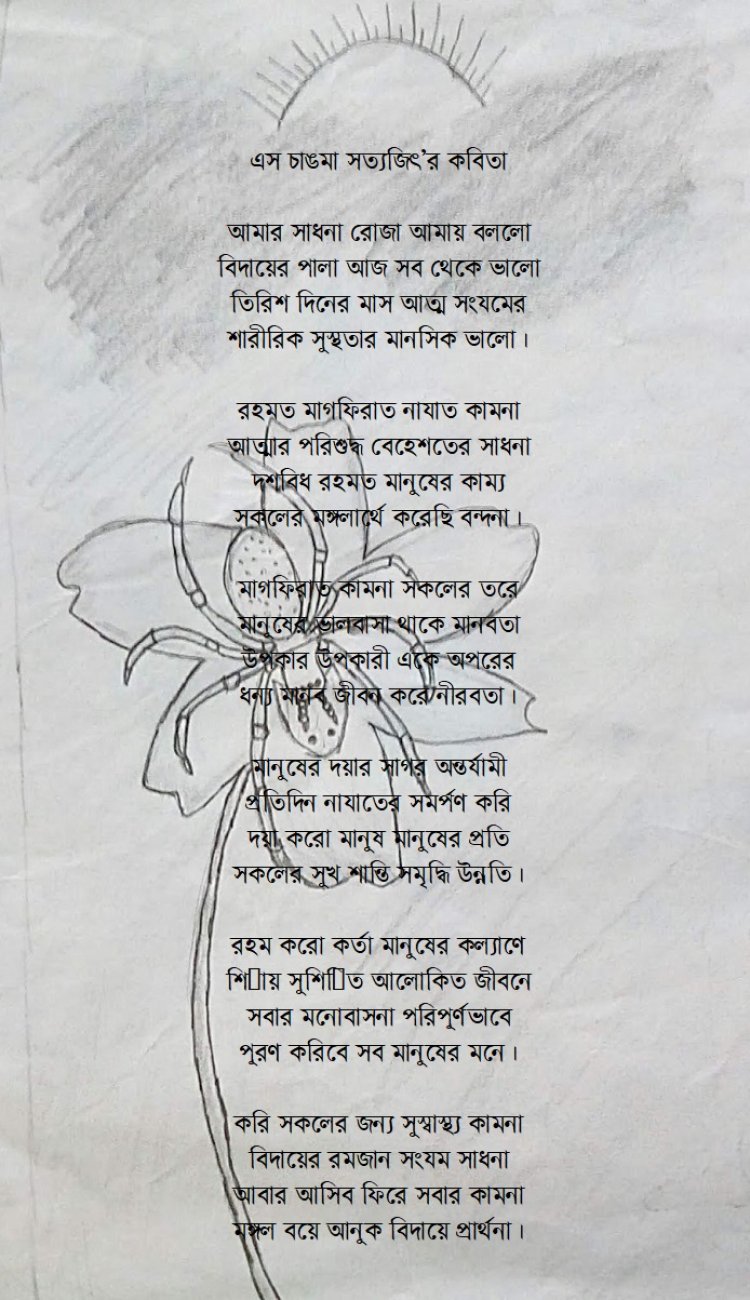 এস চাঙমা সত্যজিৎ'র কবিতা
আমার সাধনা রোজা আমায় বললো
বিদায়ের পালা আজ সব থেকে ভালো
তিরিশ দিনের মাস আত্ম সংযমের
শারীরিক সুস্থতার মানসিক ভালো।
রহমত মাগফিরাত নাযাত কামনা
আত্মার পরিশুদ্ধ বেহেশতের সাধনা
দশবিধ রহমত মানুষের কাম্য
সকলের মঙ্গলার্থে করেছি বন্দনা।
মাগফিরাত কামনা সকলের তরে
মানুষের ভালবাসা থাকে মানবতা
উপকার উপকারী একে অপরের
ধন্য মানব জীবন করে নীরবতা।
মানুষের দয়ার সাগর অন্তর্যামী
প্রতিদিন নাযাতের সমর্পণ করি
দয়া করো মানুষ মানুষের প্রতি
সকলের সুখ শান্তি সমৃদ্ধি উন্নতি।
রহম করো কর্তা মানুষের কল্যাণে
আলোকিত জীবনে
সবার মনোবাসনা পরিপূর্ণভাবে
পূরণ করিবে সব মানুষের মনে।
করি সকলের জন্য সুস্বাস্থ্য কামনা
বিদায়ের রমজান সংযম সাধনা
আবার আসিব ফিরে সবার কামনা
মঙ্গল বয়ে আনুক বিদায়ে প্রার্থনা।